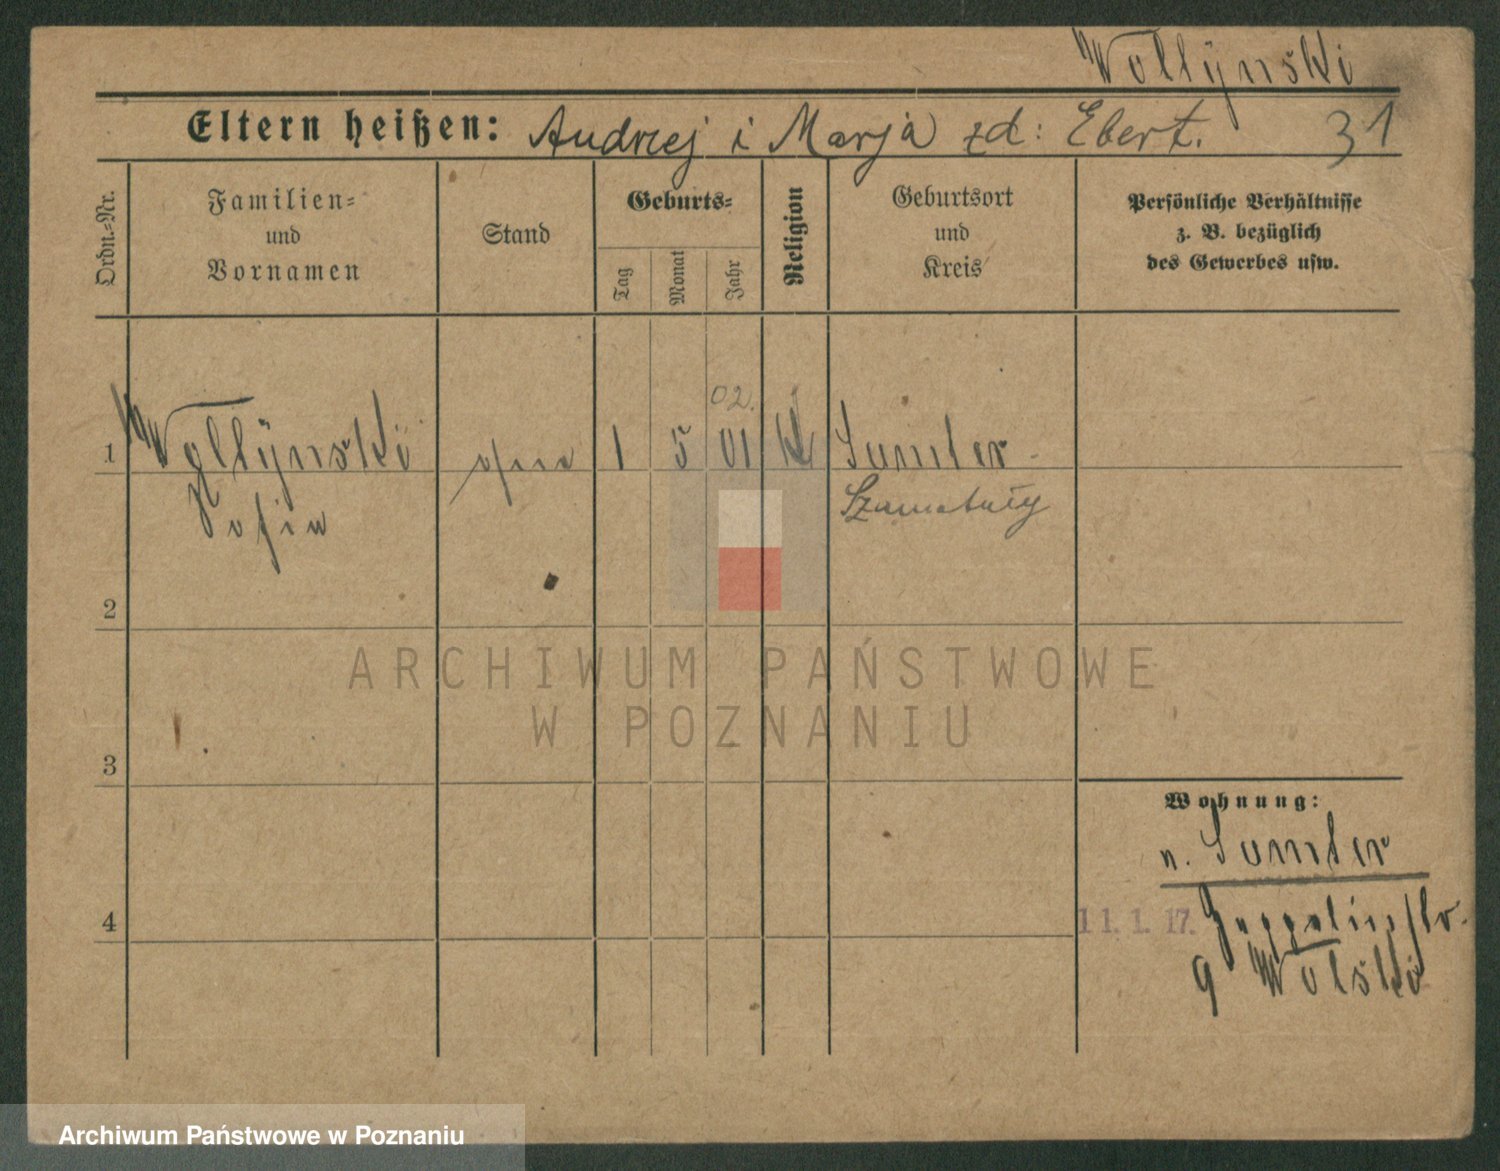 Wollÿnski
Eltern heißen: Andrzej i Marja zd: Ebert.
31
Ordn.=Nr.
Familien=
und
Vornamen
Stand
Geburts=
Tag
Monat
Jahr
Religion
Geburtsort
und
Kreis
Persönliche Verhältnisse
z. B. bezüglich
des Gewerbes usw.
02.
1 Wollÿnski 1 5 01 K Samter
Szamotuły
Sofia
2
3
4
Wohnung:
n. Samter
11. 1. 17.
9 Wolski
ARCHIWUM PAŃSTWOWE
W POZNANIU
Archiwum Państwowe w Poznaniu